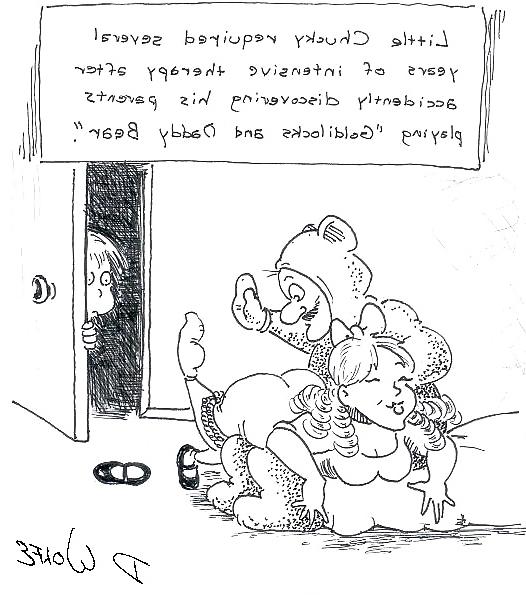 Little Chucky required several
years of intensive therapy after
accidently discovering his parents
playing "Goldilocks and Daddy Bear."
D WOLFE